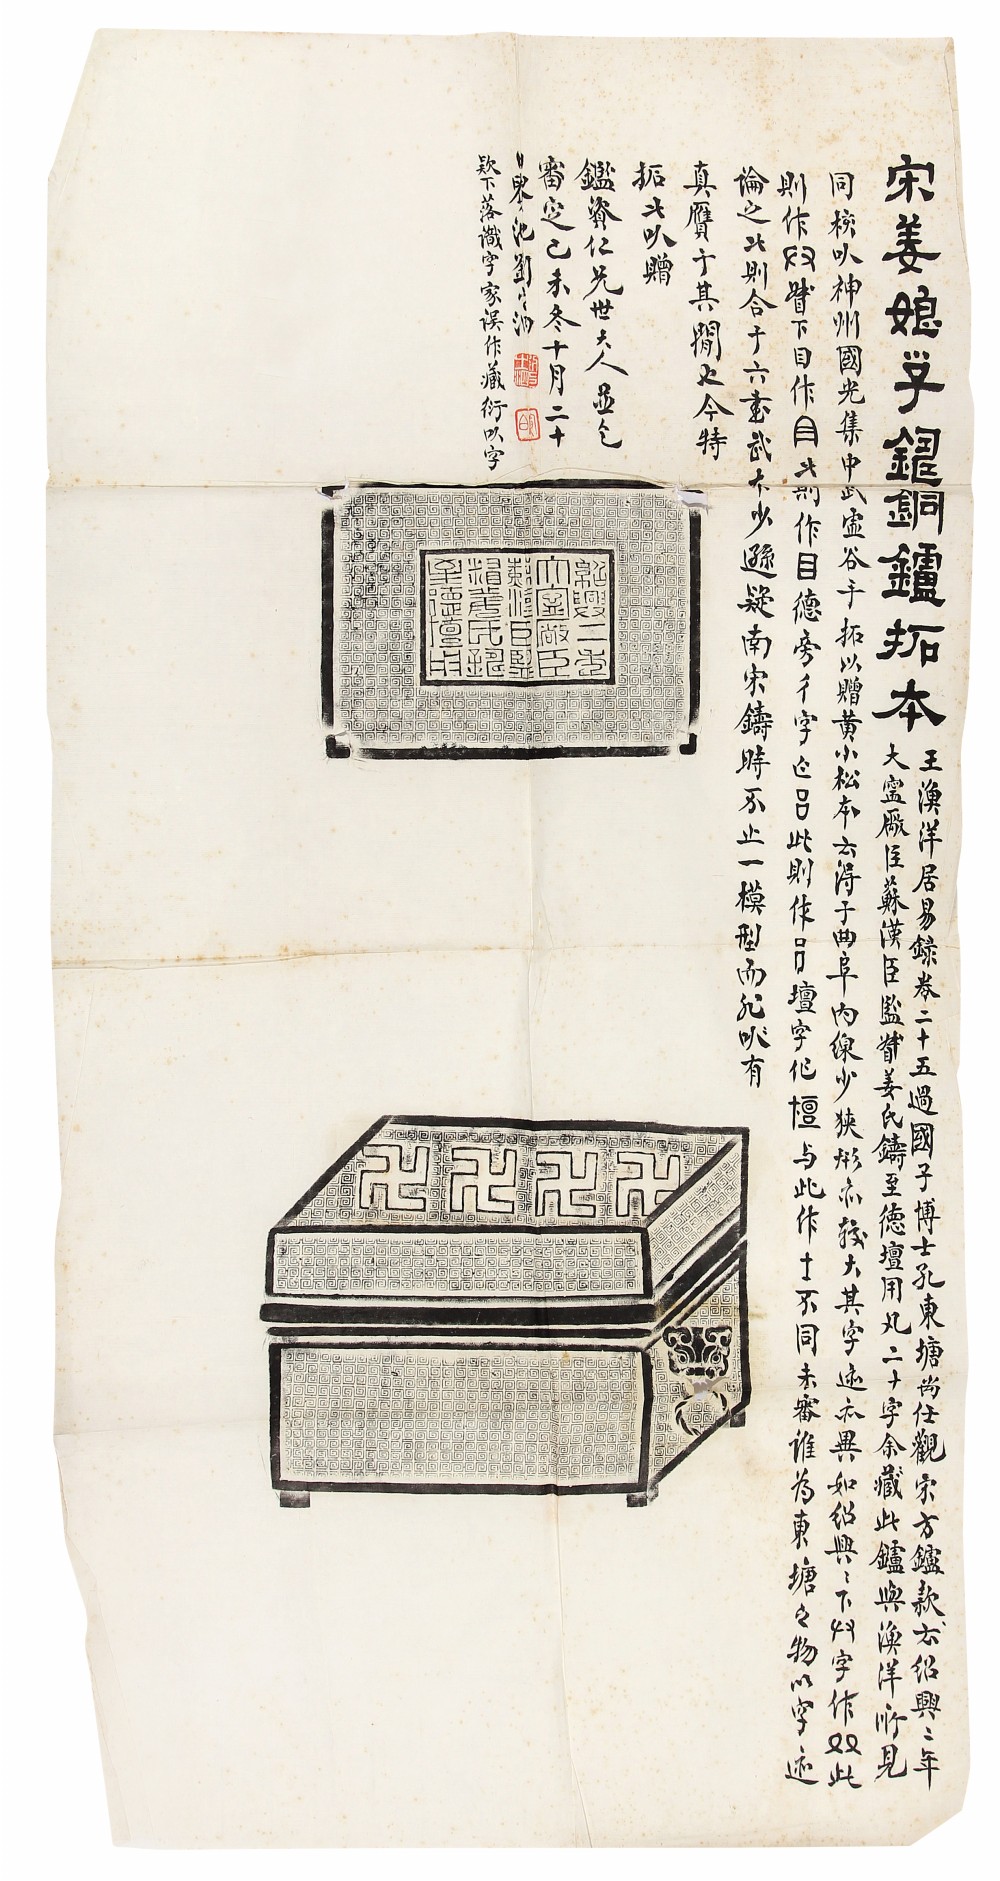 宋姜娘子鑄銅鑪拓本
王漁洋居易錄卷二十五過國子博士孔東塘尚任觀宋方鑪款云紹興二年
大寧厰臣蘇漢臣監督姜氏鑄至德壇用凡二十字余藏此鑪與漁洋所見
同核以神州國光集中武虛谷手拓以贈黃小松本云得于曲阜內線少狹形亦較大其字迹亦異如紹興二下 字作 此
則作 督下目作 此則作目德旁彳字 呂此則作 壇字作檀与此作土不同未審誰為東塘之物以字迹
論之此則合于六書武本少遜疑南宋鑄時不止一模型而孔 有
真贗于其閒也今特
拓此以贈
鑑資仁兄世大人並乞
審定己未冬十月二十
日 池劉
款下落識字家誤作藏衍以字
紹興二年
大寧厰臣
蘇漢臣監
督姜氏鑄
至德壇用